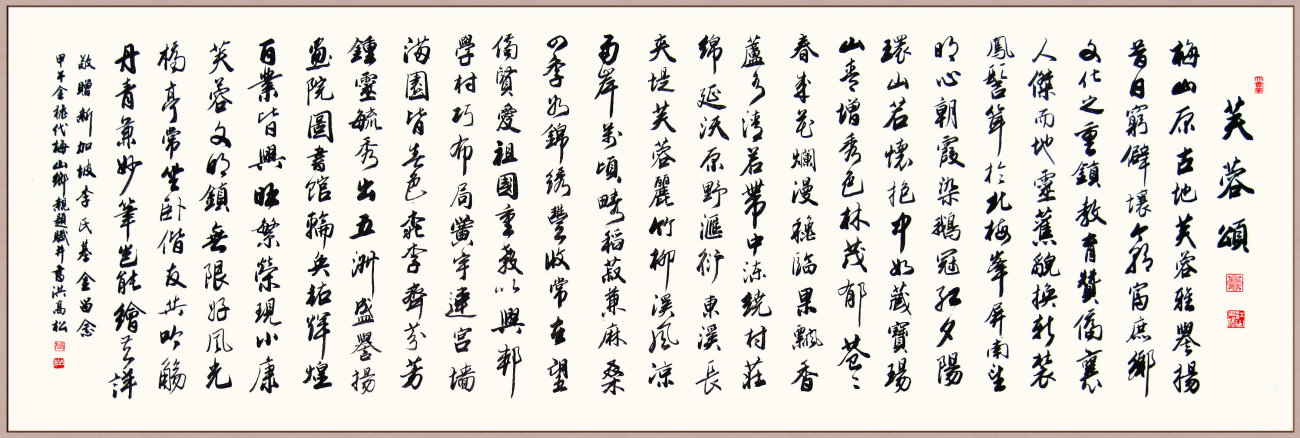 芙蓉頌
梅山原古地芙蓉雅譽揚
昔日窮僻壤今朝富庶鄉
文化之重鎮教育贊僑襄
人傑而地靈蕉貌換新裝
鳳髻聳於北梅峯屏南望
明心朝霞染鵝冠紅夕陽
環山若懷抱中如藏寶瑒
山青增秀色林茂郁蒼蒼
春來花爛漫穐臨果飄香
蘆水清若帶中流繞村莊
綿延沃原野滙衍東溪長
夾堤芙蓉麗竹柳溪風凉
两岸萬頃疇稻菽兼麻桑
四季如錦綉豐收常在望
僑賢愛祖國重教以興邦
學村巧布局黌宇連宫墙
满園皆春色桃李齊芬芳
鍾靈毓秀出五洲盛譽揚
畫院圖書馆輪奂鋕輝煌
百業皆興旺繁榮現小康
芙蓉文明鎮無限好风光
橋亭常坐卧偕友共吟觞
丹青兼妙筆岂能繪其詳
敬贈新加坡李氏基金留念
甲午金穐代梅山鄉親題賦并書洪高松